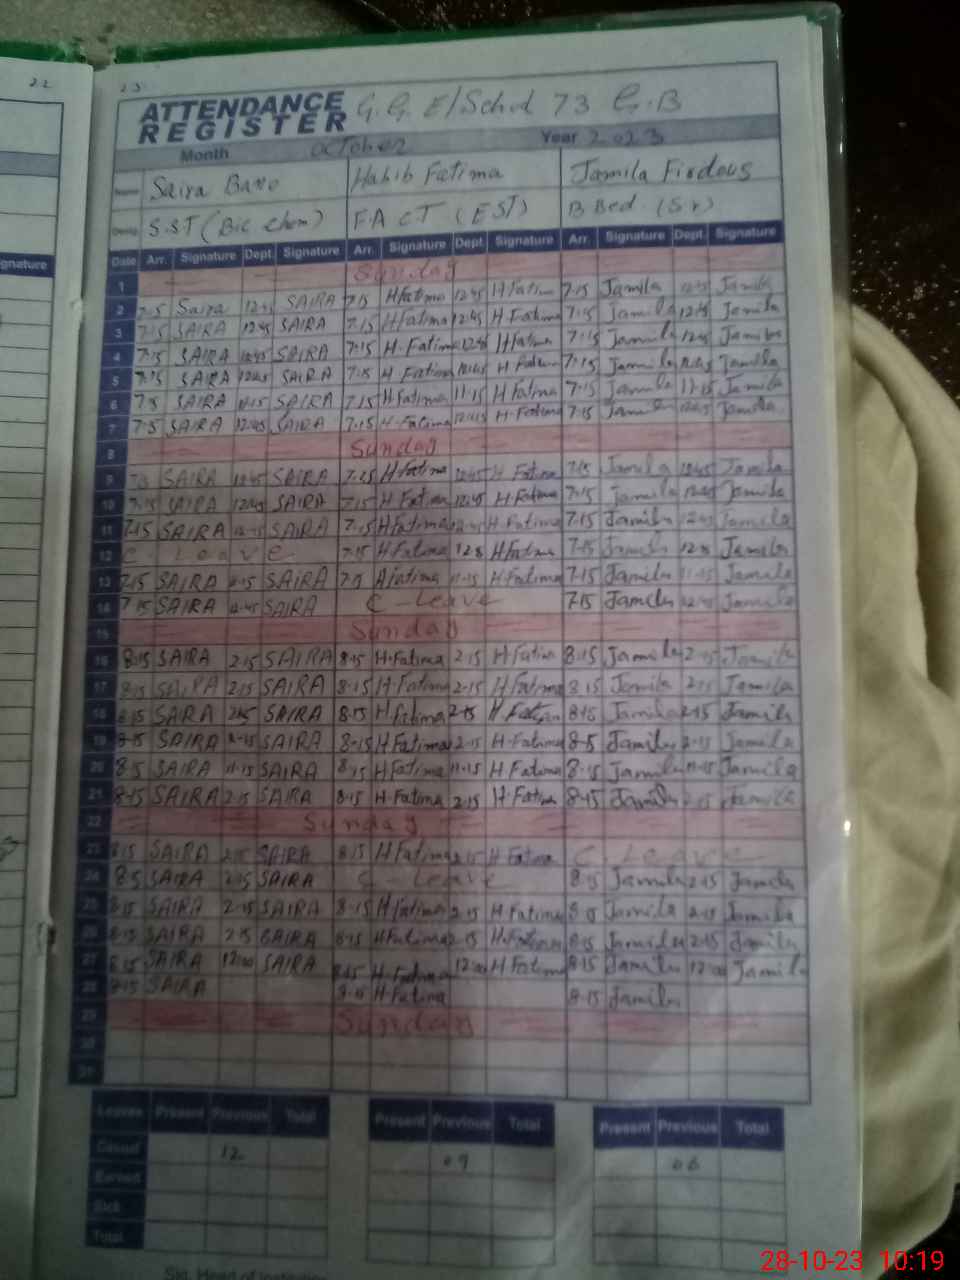 22
23
ATTENDANCE REGISTER G.G.E/School 73 G.B
Month October Year 2023
Name Saira Bano Habib Fatima Jamila Firdous
S.S.T (Bio Chem) F.A CT (EST) B Bed. (Sr)
gnature
Date Arr. Signature Dept. Signature Arr. Signature Dept. Signature Arr. Signature Dept. Signature
1 Sunday
2 7-15 Saira 12:45 SAIRA 7-15 Hfatima 12:45 H fatima 7-15 Jamila 12:45 Jamila
3 7-15 SAIRA 12:45 SAIRA 7.15 Hfatima 12:45 H Fatima 7-15 Jamila 12:45 Jamila
4 7-15 SAIRA 12:45 SAIRA 7-15 H-Fatima 12:45 Hfatima 7-15 Jamila 12:45 Jamila
5 7-15 SAIRA 12:45 SAIRA 7-15 H Fatima 12:45 H Fatima 7-15 Jamila 12:45 Jamila
6 SAIRA 11-15 SAIRA 7.15 Hfatima 11-15 H Fatima 7-15 Jamila 11-15 Jamila
7 SAIRA 12:45 SAIRA 7-15 H-Fatima 12:45 H-Fatima 7-15 Jamila 12:45 Jamila
8 Sunday
9 SAIRA 12:45 SAIRA 7.15 H Fatima 12:45 H Fatima 7-15 Jamila 12:45 Jamila
10 7-15 SAIRA 12:45 SAIRA 7.15 H Fatima 12:45 H-Fatima 7-15 Jamila 12:45 Jamila
11 7-15 SAIRA 12:45 SAIRA 7.15 HFatima 12:45 H-Fatima 7-15 Jamila 12:45 Jamila
12 C Leave 7-15 H-Fatima HFatima 7-15 Jamila Jamila
13 7-15 SAIRA 11-15 SAIRA fatima 11-15 H-Fatima 7-15 Jamila 11-15 Jamila
14 7-15 SAIRA 12:45 SAIRA C-Leave 7-15 Jamila 12:45 Jamila
15 Sunday
16 8-15 SAIRA 2-15 SAIRA 8-15 H-Fatima 2-15 H Fatima 8-15 Jamila 2-15 Jamila
17 8-15 SAIRA 2-15 SAIRA 8-15 H Fatima 2-15 H Fatima 8-15 Jamila 2-15 Jamila
18 8-15 SAIRA 2-15 SAIRA 8-15 H Fatima 2-15 H Fatima 8-15 Jamila 2-15 Jamila
19 8-15 SAIRA 2-15 SAIRA 8-15 H Fatima 2-15 H-Fatima 8-5 Jamila 2-15 Jamila
20 8-5 SAIRA 11-15 SAIRA 8-15 H Fatima 11-15 H Fatima 8-15 Jamila 11-15 Jamila
21 8-15 SAIRA 2-15 SAIRA 8-15 H-Fatima 2-15 H-Fatima 8-15 Jamila 2-15 Jamila
22 Sunday
23 8-15 SAIRA 2-15 SAIRA 8-15 H Fatima 2-15 H Fatima C Leave
24 8-5 SAIRA 2-15 SAIRA C-Leave 8-15 Jamila 2-15 Jamila
25 8-15 SAIRA 2-15 SAIRA 8-15 H Fatima 2-15 H Fatima Jamila 2-15 Jamila
26 8-15 SAIRA 2-15 SAIRA 8-15 H Fatima 2-15 H-Fatima 8-15 Jamila 2-15 Jamila
27 8-15 SAIRA 12:00 SAIRA 8-15 H-Fatima 12:00 H Fatima 8-15 Jamila 12:00 Jamila
28 8-15 SAIRA 8-15 H-Fatima 8-15 Jamila
29 Sunday
30
31
Leaves Present Previous Total Present Previous Total Present Previous Total
Casual 12 09 06
Earned
Sick
Total
Sig. Head of Institution
28-10-23 10:19